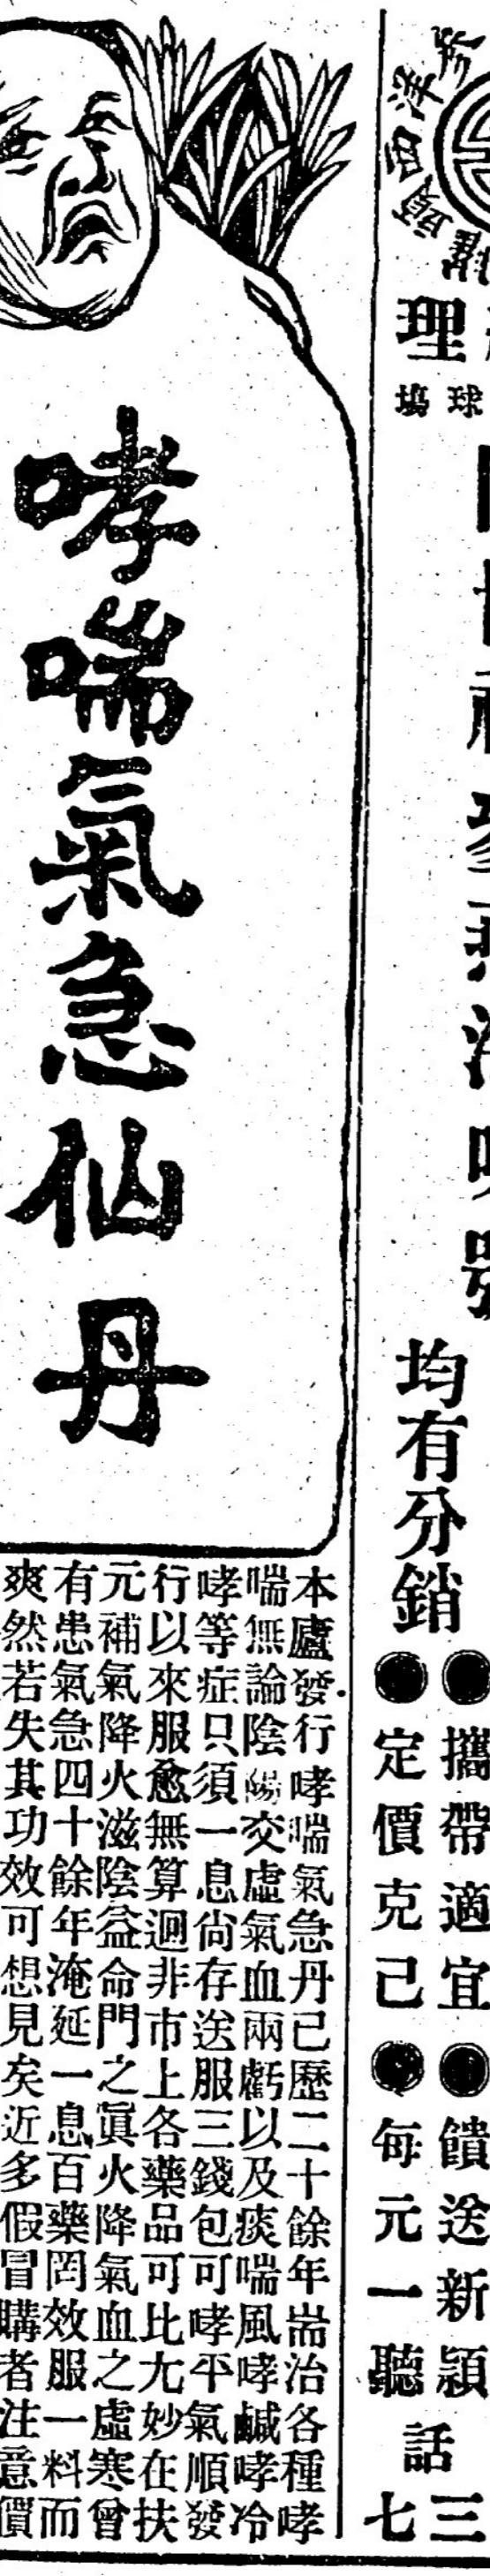 理
球塲
均有分銷
攜帶適宜
定價克己
饋送新穎
每元一聽
話
三七
哮喘氣急仙丹
本廬發行哮喘氣急丹已歷二十餘年耑治各種哮
喘無論陰陽交虛氣血兩虧以及痰喘風哮鹹哮冷
哮等症只須一息尙存送服三錢包可哮平氣順發
行以來服愈無算迥非市上各藥品可比尢妙在扶
元補氣降火滋陰益命門之眞火降氣血之虛寒曾
有患氣急四十餘年淹延一息百藥罔效服一料而
爽然若失其功效可想見矣近多假冒購者注意價